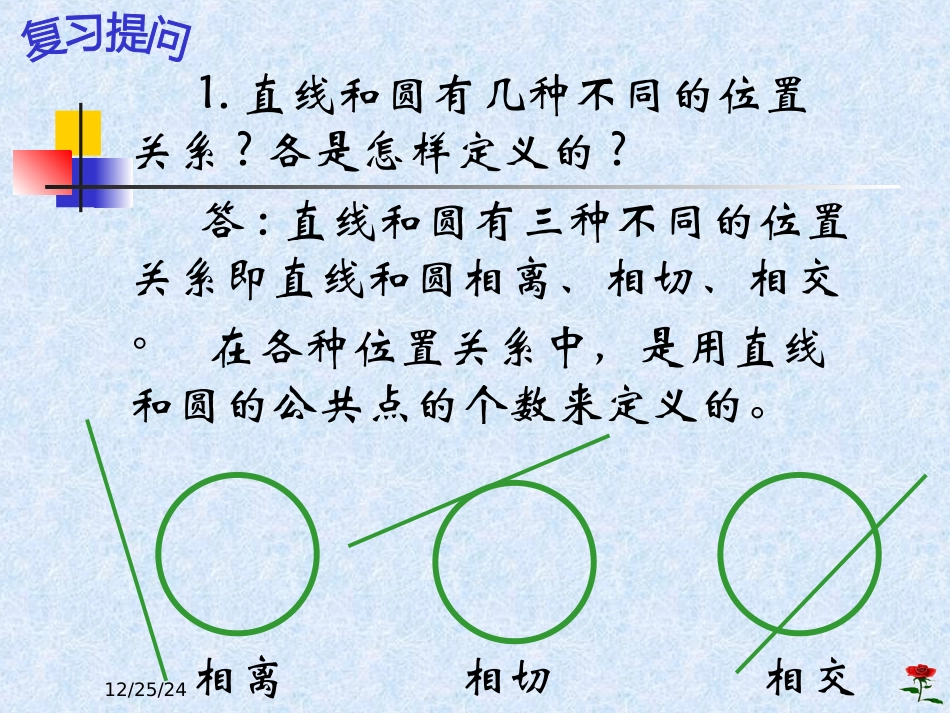 复习提问
1. 直线和圆有几种不同的位置
关系？各是怎样定义的？
答：直线和圆有三种不同的位置
关系即直线和圆相离、相切、相交
。 在各种位置关系中，是用直线
和圆的公共点的个数来定义的。
相离 相切 相交
12/25/24